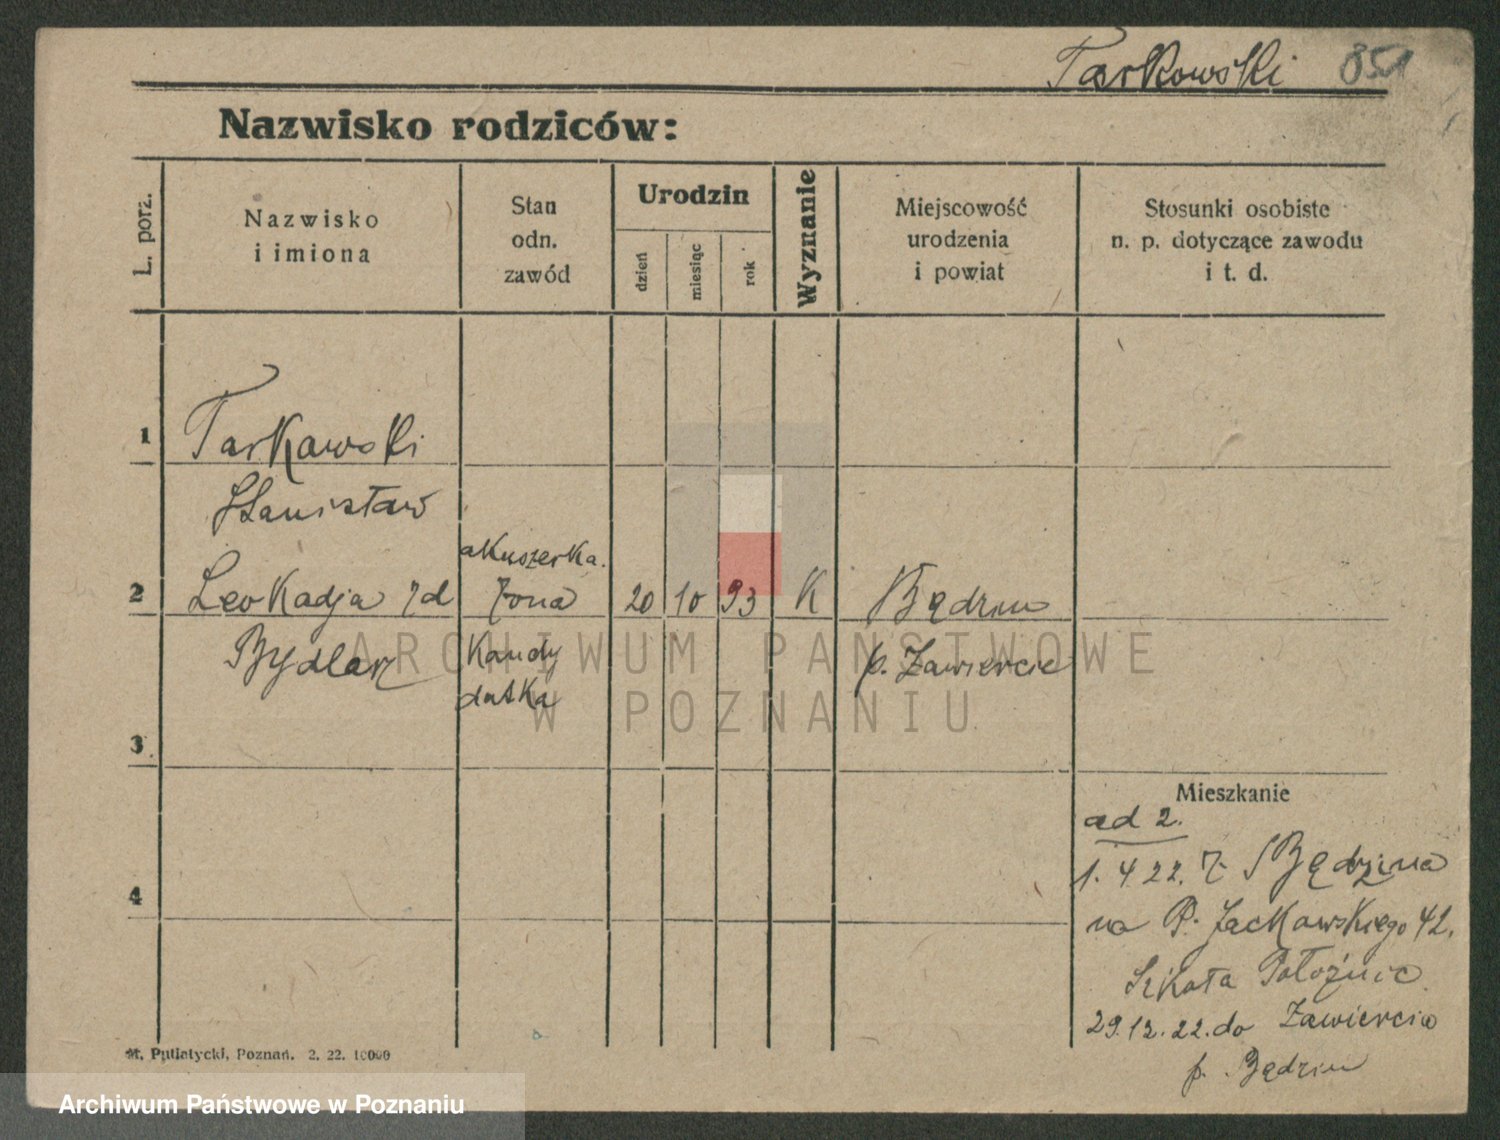 Tarkowski 851
Nazwisko rodziców:
L. porz.
Nazwisko
i imiona
Stan
odn.
zawód
Urodzin
dzień
miesiąc
rok
Wyznanie
Miejscowość
urodzenia
i powiat
Stosunki osobiste
n. p. dotyczące zawodu
i t. d.
1
Tarkowski
Stanisław
akuszerka.
2 Leokadja żona 20 10 93 K Będzin
Bydlarz Kandy p. Zawiercie
datka
3
Mieszkanie
ad 2.
1. 4. 22. z Będzina
na P. Jackowskiego 42.
Szkoła Położnic
29.12.22. do Zawiercia
p. Będzin
4
M. Putiatycki, Poznań. 2. 22. 10000
ARCHIWUM PAŃSTWOWE
W POZNANIU
Archiwum Państwowe w Poznaniu